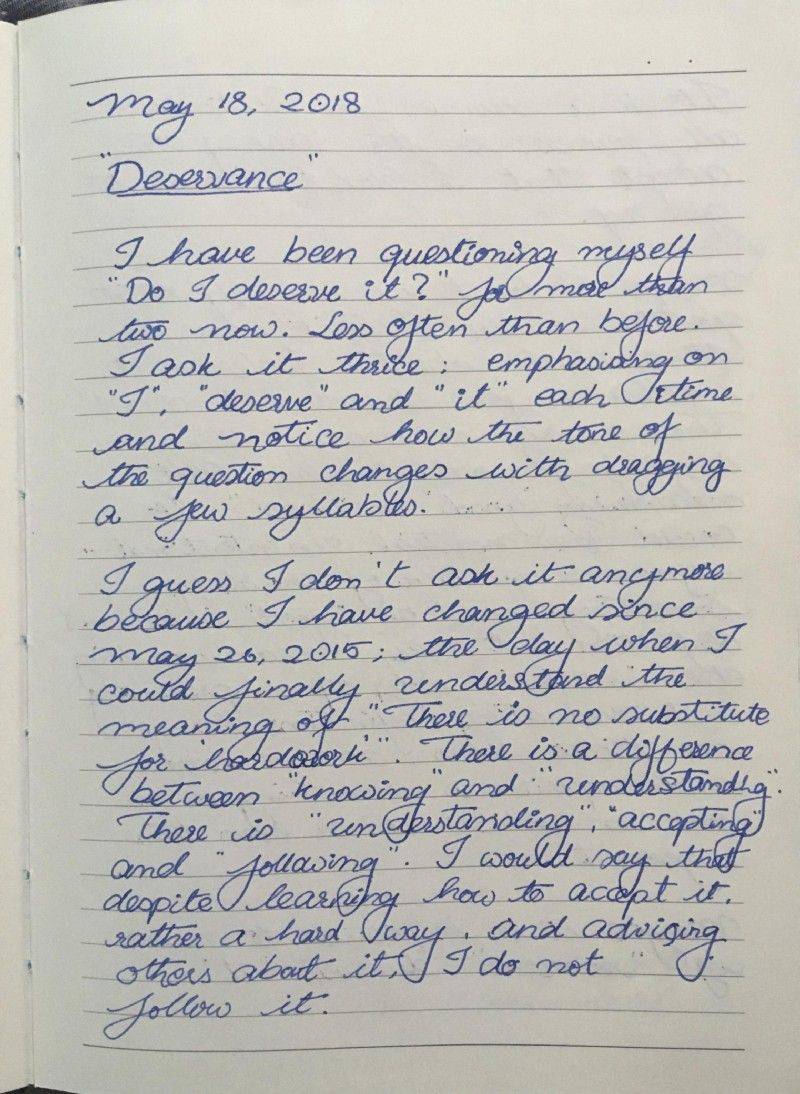 May 18, 2018
"Deservance"
I have been questioning myself
"Do I deserve it?" for more than
two now. Less often than before.
I ask it thrice; emphasising on
"I", "deserve" and "it" each time
and notice how the tone of
the question changes with dragging
a few syllables.
I guess I don't ask it anymore
because I have changed since
May 26, 2015; the day when I
could finally understand the
meaning of "There is no substitute
for 'hardwork'". There is a difference
between "knowing" and "understanding".
There is "understanding", "accepting"
and "following". I would say that
despite learning how to accept it,
rather a hard way, and advising
others about it, I do not
follow it.